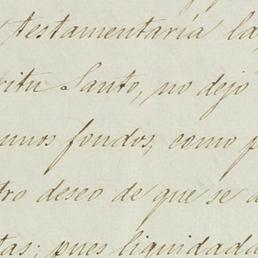 testamentaría la
ritu Santo, no dejó
unos fondos, como p
tro deseo de que se a
tas; pues liquidada